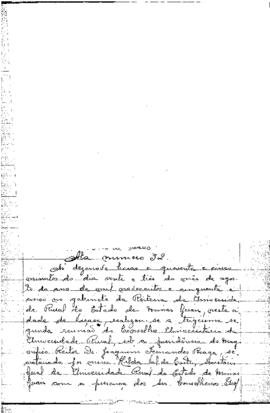 Ata numero 32
As dezenove horas e quarenta e cinco
minutos do dia vinte e três do mês de agos-
to do ano de mil novecentos e cinquenta e
cinco no gabinete da Reitoria da Universida-
de Rural do Estado de Minas Gerais, nesta ci-
dade de Viçosa, realizou-se a trigesima se-
gunda reunião do Conselho Universitario da
Universidade Rural, sob a presidência do mag-
nifico Reitor Dr. Joaquim Fernandes Braga, se-
cretariado por mim, de Brito, Secretario
geral da Universidade Rural do Estado de Minas
Gerais com a presença dos srs. Conselheiros